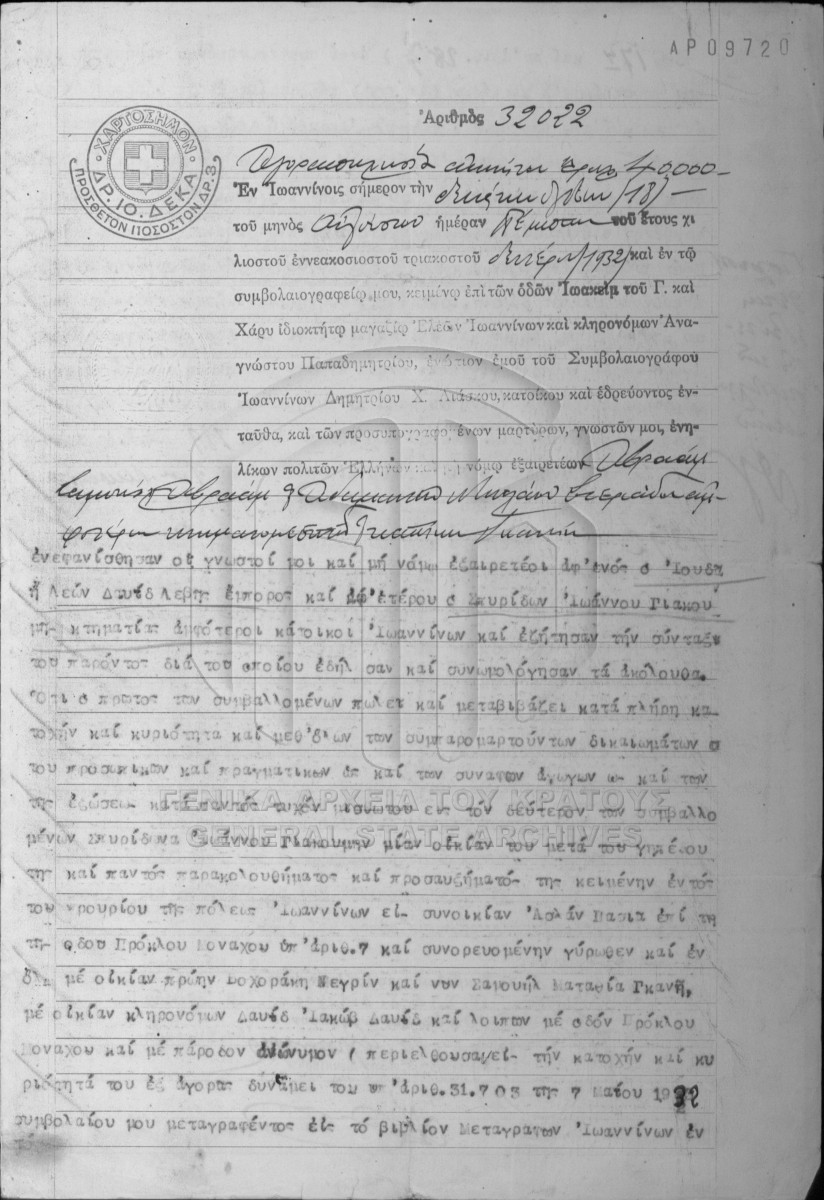 ΑΡ09720
Ἀριθμὸς 32022
ΧΑΡΤΟΣΗΜΟΝ
ΔΡ. 10. ΔΕΚΑ
ΠΡΟΣΘΕΤΟΝ ΠΟΣΟΣΤΟΝ ΔΡ. 3.
Ἀγοραπωλησία ἀκινήτου δραχ. 40.000-
Ἐν Ἰωαννίνοις σήμερον τὴν δεκάτην ὀγδόην (18)-
τοῦ μηνὸς Αὐγούστου ἡμέραν Πέμπτην τοῦ ἔτους χι
λιοστοῦ ἐννεακοσιοστοῦ τριακοστοῦ δευτέρου (1932) καὶ ἐν τῷ
συμβολαιογραφείῳ μου, κειμένῳ ἐπὶ τῶν ὁδῶν Ἰωακεὶμ τοῦ Γ. καὶ
Χάρυ ἰδιοκτήτῳ μαγαζίῳ Ἐλεῶν Ἰωαννίνων καὶ κληρονόμων Ἀνα-
γνώστου Παπαδημητρίου, ἐνώπιον ἐμοῦ τοῦ Συμβολαιογράφου
Ἰωαννίνων Δημητρίου Χ. Λιάσκου, κατοίκου καὶ ἑδρεύοντος ἐν-
ταῦθα, καὶ τῶν προσυπογραφομένων μαρτύρων, γνωστῶν μοι, ἐνη-
λίκων πολιτῶν Ἑλλήνων καὶ μὴ νόμῳ ἐξαιρετέων Ἀβραὰμ
Ἀβραὰμ
ἐνεφανίσθησαν οἱ γνωστοί μοι καί μή νόμω ἐξαιρετέοι ἀφ'ἑνός ὁ Ἰουδα
ἤ Λεών Δαυίδ Λεβής ἔμπορος καί ἀφ'ἑτέρου ὁ Σπυρίδων Ἰωάννου Γιακου
μης κτηματίας ἀμφότεροι κάτοικοι Ἰωαννίνων καί ἐζήτησαν τήν σύνταξι
του παρόντος διά του οποίου ἐδήλ σαν καί συνωμολόγησαν τά ἀκόλουθα.
Ὅτι ὁ πρωτος των συμβαλλομένων πωλει καί μεταβιβάζει κατά πλήρη κα
τοχήν καί κυριότητα καί μεθ'ὅλων των συμπαρομαρτούντων δικαιωμάτων ο
του προσωπικων καί πραγματικων ὡς καί των συναφων ἀγωγων ω- καί των
της ἐξώσεω- κατά παντός τυχόν νομέως του εις τόν δεύτερον των συμβαλλο
μένων Σπυρίδωνα Ἰωάννου Γιακουμην μίαν οἰκίαν του μετά του γηπέδου
της καί παντός παρακολουθήματος καί προσαυξήματός της κειμένην ἐντός
του Φρουρίου της πόλεως Ἰωαννίνων εἰ- συνοικίαν Ἀσλάν Πασια ἐπί τη
τη- οδου Πρόκλου Μοναχου ὑπ'ἀριθ.7 καί συνορευομένην γύρωθεν καί ἐν
ὅλω μέ οἰκίαν πρώην Βοχοράκη Νεγρίν καί νυν Σαμουήλ Ματαθία Γκανῆ,
μέ οἰκίαν κληρονόμων Δαυίδ Ἰακώβ Δαυίδ καί λοιπων μέ οδόν Πρόκλου
Μοναχου καί μέ πάροδον ἀνώνυμον ( περιελθουσαν/εἰ- τήν κατοχήν καί κυ
ριότητά του ἐξ ἀγορας δυνάμει του υπ'ἀριθ.31.703 της 7 Μαΐου 1932
συμβολαίου μου μεταγραφέντος εἰς τό βιβλίον Μεταγραφων Ἰωαννίνων ἐν
ΓΕΝΙΚΑ ΑΡΧΕΙΑ ΤΟΥ ΚΡΑΤΟΥΣ
GENERAL STATE ARCHIVES